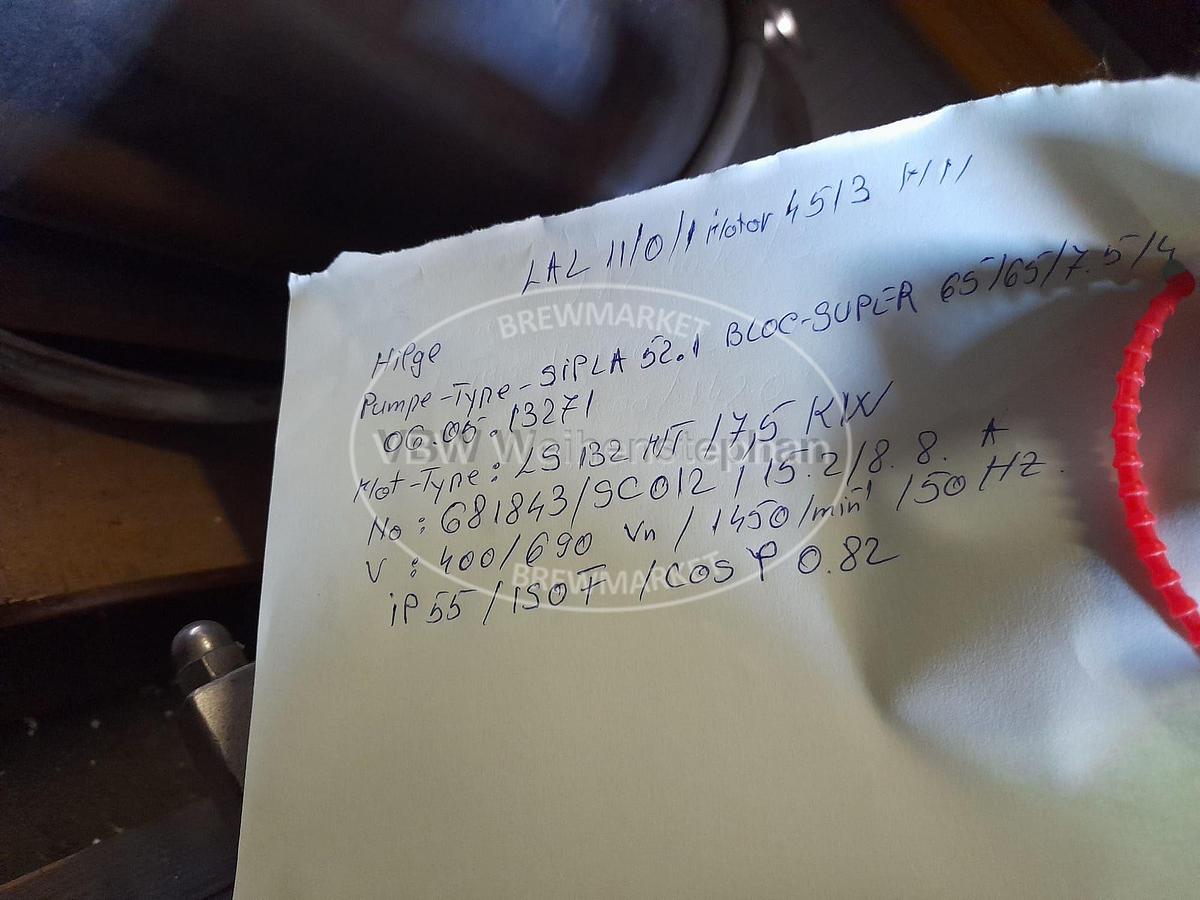 LAL 11/0/1 Motor 45/3
Hilge
Pumpe-Type-SiPLA 52.1 BLOC-SUPER 65/65/7.5/4
06.05.13271
Mot-Type: LS 132 MT /7,5 KW
No: 681843/SC012 / 15.2/8.8. A
V: 400/690 Vn / 1450/min¹ /50 HZ.
iP 55 / ISO F / COS φ 0.82
BREWMARKET
VBW Weihenstephan
BREWMARKET